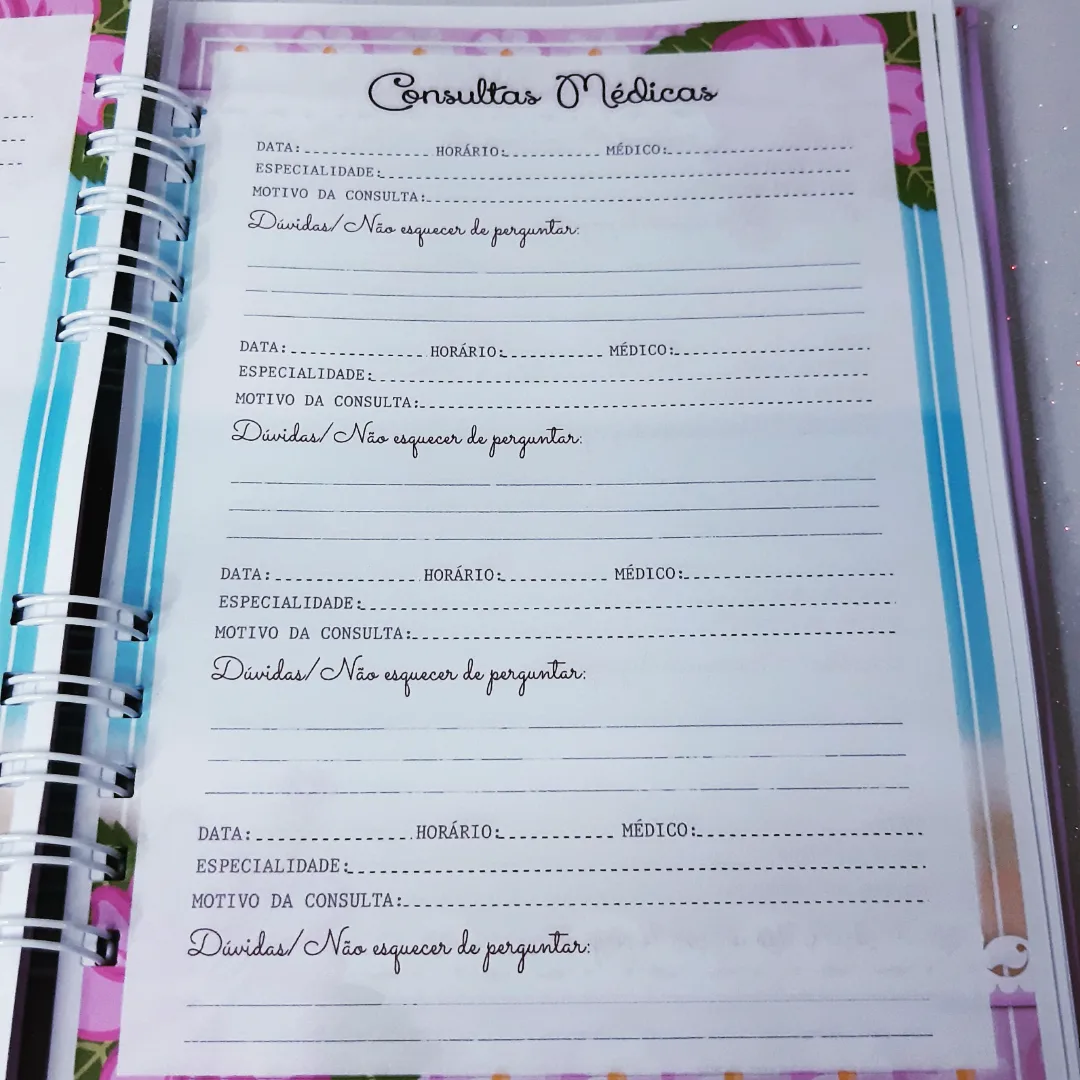 Consultas Médicas
DATA: HORÁRIO: MÉDICO:
ESPECIALIDADE:
MOTIVO DA CONSULTA:
Dúvidas/Não esquecer de perguntar:
DATA: HORÁRIO: MÉDICO:
ESPECIALIDADE:
MOTIVO DA CONSULTA:
Dúvidas/Não esquecer de perguntar:
DATA: HORÁRIO: MÉDICO:
ESPECIALIDADE:
MOTIVO DA CONSULTA:
Dúvidas/Não esquecer de perguntar:
DATA: HORÁRIO: MÉDICO:
ESPECIALIDADE:
MOTIVO DA CONSULTA:
Dúvidas/Não esquecer de perguntar: